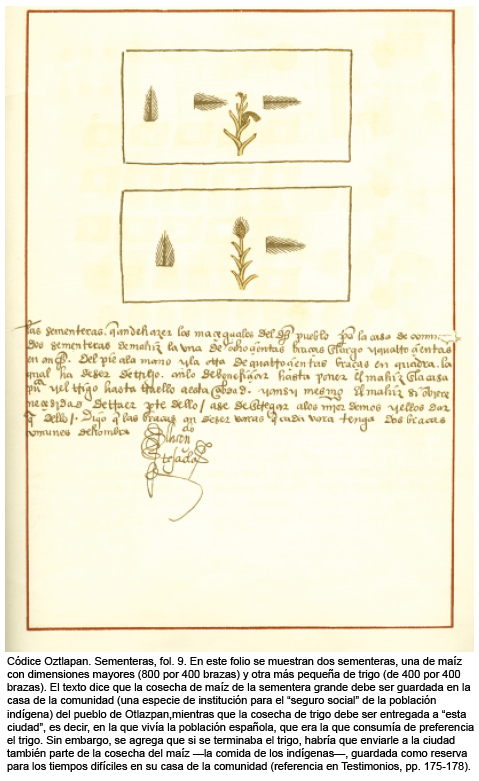 las sementeras. q̃ an de hazer los maceguales del dho pueblo p̃a la casa de comunidad
dos sementeras de maiz la una de ochoçientas braças de largo y quatroçientas
en ancho. Del pie a la mano y la otra de quatroçientas braças en quadra. la
qual ha de ser de trigo. an lo de benefiçiar hasta poner el maiz en la casa
y el trigo hasta traello a esta çibdad. y ansy mesmo el maiz si obiere
neçesidad de traer p̃te dello
Dixo q̃ las braças an de ser varas q̃ cada vara tenga dos braças
comunes de hombre
Códice Oztlapan. Sementeras, fol. 9. En este folio se muestran dos sementeras, una de maíz
con dimensiones mayores (800 por 400 brazas) y otra más pequeña de trigo (de 400 por 400
brazas). El texto dice que la cosecha de maíz de la sementera grande debe ser guardada en la
casa de la comunidad (una especie de institución para el “seguro social” de la población
indígena) del pueblo de Otlazpan,mientras que la cosecha de trigo debe ser entregada a “esta
ciudad”, es decir, en la que vivía la población española, que era la que consumía de preferencia
el trigo. Sin embargo, se agrega que si se terminaba el trigo, habría que enviarle a la ciudad
también parte de la cosecha del maíz —la comida de los indígenas—, guardada como reserva
para los tiempos difíciles en su casa de la comunidad (referencia en Testimonios, pp. 175-178).